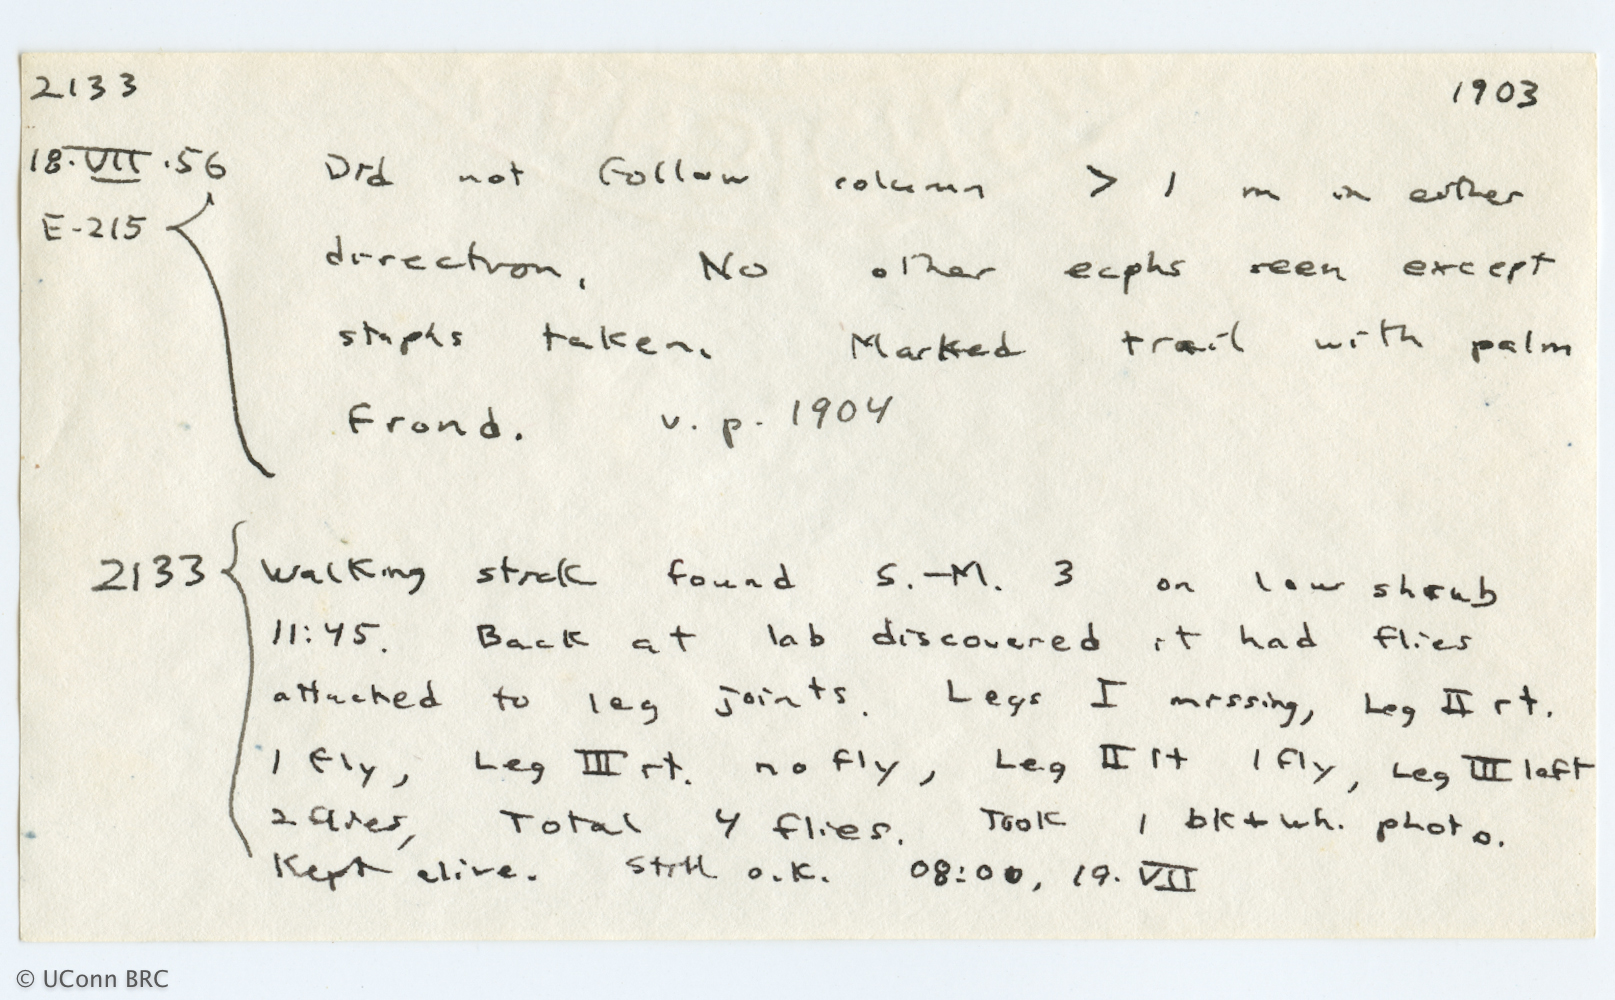 2133 1903
18.VII.56 Did not follow column > 1 m in either
E-215 direction. No other ecphs seen except
staphs taken. Marked trail with palm
frond. v. p. 1904
2133 Walking stick found S.-M. 3 on low shrub
11:45. Back at lab discovered it had flies
attached to leg joints. Legs I missing, Leg II rt.
1 fly, Leg III rt. no fly, Leg II lt 1 fly, Leg III left
2 flies, Total 4 flies. Took 1 bk + wh. photo.
Kept alive. Still o.k. 08:00, 19. VII
© UConn BRC